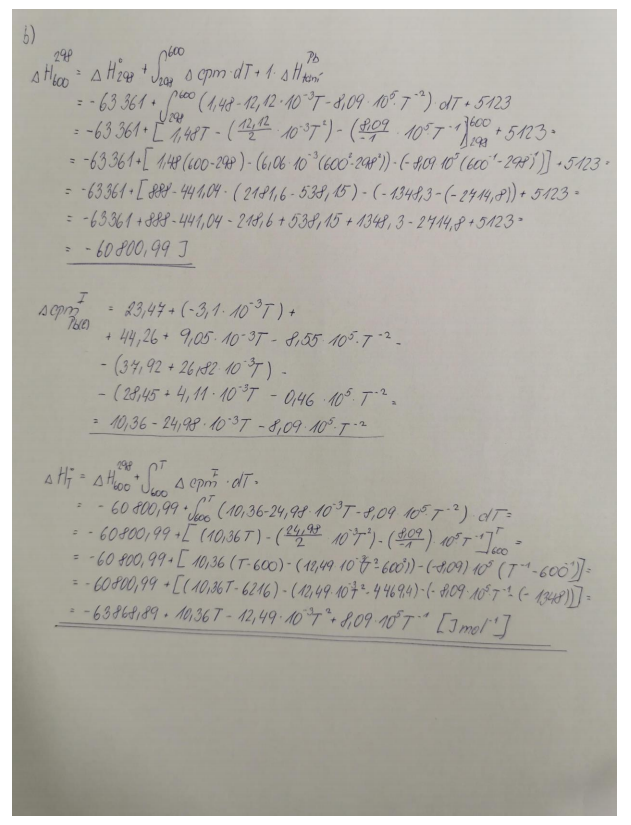 b)
ΔH₆₀₀²⁹⁸ = ΔH°₂₉₈ + ∫₂₉₈⁶⁰⁰ Δcpm·dT + 1·ΔH°tání Pb
= -63 361 + ∫₂₉₈⁶⁰⁰ (1,48-12,12·10⁻³T-8,09·10⁵·T⁻²)·dT + 5123
= -63361 + [1,48T - (12,12/2·10⁻³T²) - (8,09/-1·10⁵T⁻¹]₂₉₈⁶⁰⁰ + 5123 =
= -63361+[1,48(600-298)-(6,06·10⁻³(600²-298²))-(-8,09·10⁵(600⁻¹-298)¹)]+5123=
= -63361+[888-441,04-(2181,6-538,15)-(-1348,3-(-2714,8))+5123=
= -63361+888-441,04-218,6+538,15+1348,3-2714,8+5123=
= -60800,99 J
Δcpm Pb(l) ᴵ = 23,47+(-3,1·10⁻³T)+
+ 44,26 + 9,05·10⁻³T - 8,55 10⁵·T⁻² -
- (37,92 + 26,82·10⁻³T) -
- (28,45 + 4,11·10⁻³T - 0,46·10⁵·T⁻² =
= 10,36-24,98·10⁻³T-8,09·10⁵·T⁻²
ΔH°T = ΔH₆₀₀²⁹⁸ + ∫₆₀₀ᵀ Δcpmᴵ·dT=
= -60 800,99 + ∫₆₀₀ᵀ (10,36-24,98·10⁻³T-8,09 10⁵T⁻²) dT=
= -60800,99+[(10,36T)-(24,98/2 10⁻³T²)-(8,09/-1) 10⁵T⁻¹]₆₀₀ᵀ =
= -60 800,99+[10,36(T-600)-(12,49 10⁻³(T²-600²))-(-8,09) 10⁵(T⁻¹-600⁻¹)]=
= -60800,99+[(10,36T-6216)-(12,49·10⁻³T²-4469,4)-(-8,09·10⁵T⁻¹-(-1348))]=
= -63868,89+10,36T-12,49·10⁻³T²+8,09·10⁵T⁻¹ [J mol⁻¹]